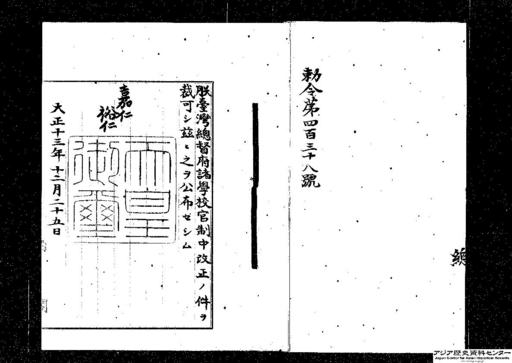 勅令第四百三十八號
朕臺灣總督府諸學校官制中改正ノ件ヲ
裁可シ茲ニ之ヲ公布セシム
嘉仁
裕仁
天皇
御璽
大正十三年十二月二十五日
アジア歴史資料センター
Japan Center for Asian Historical Records